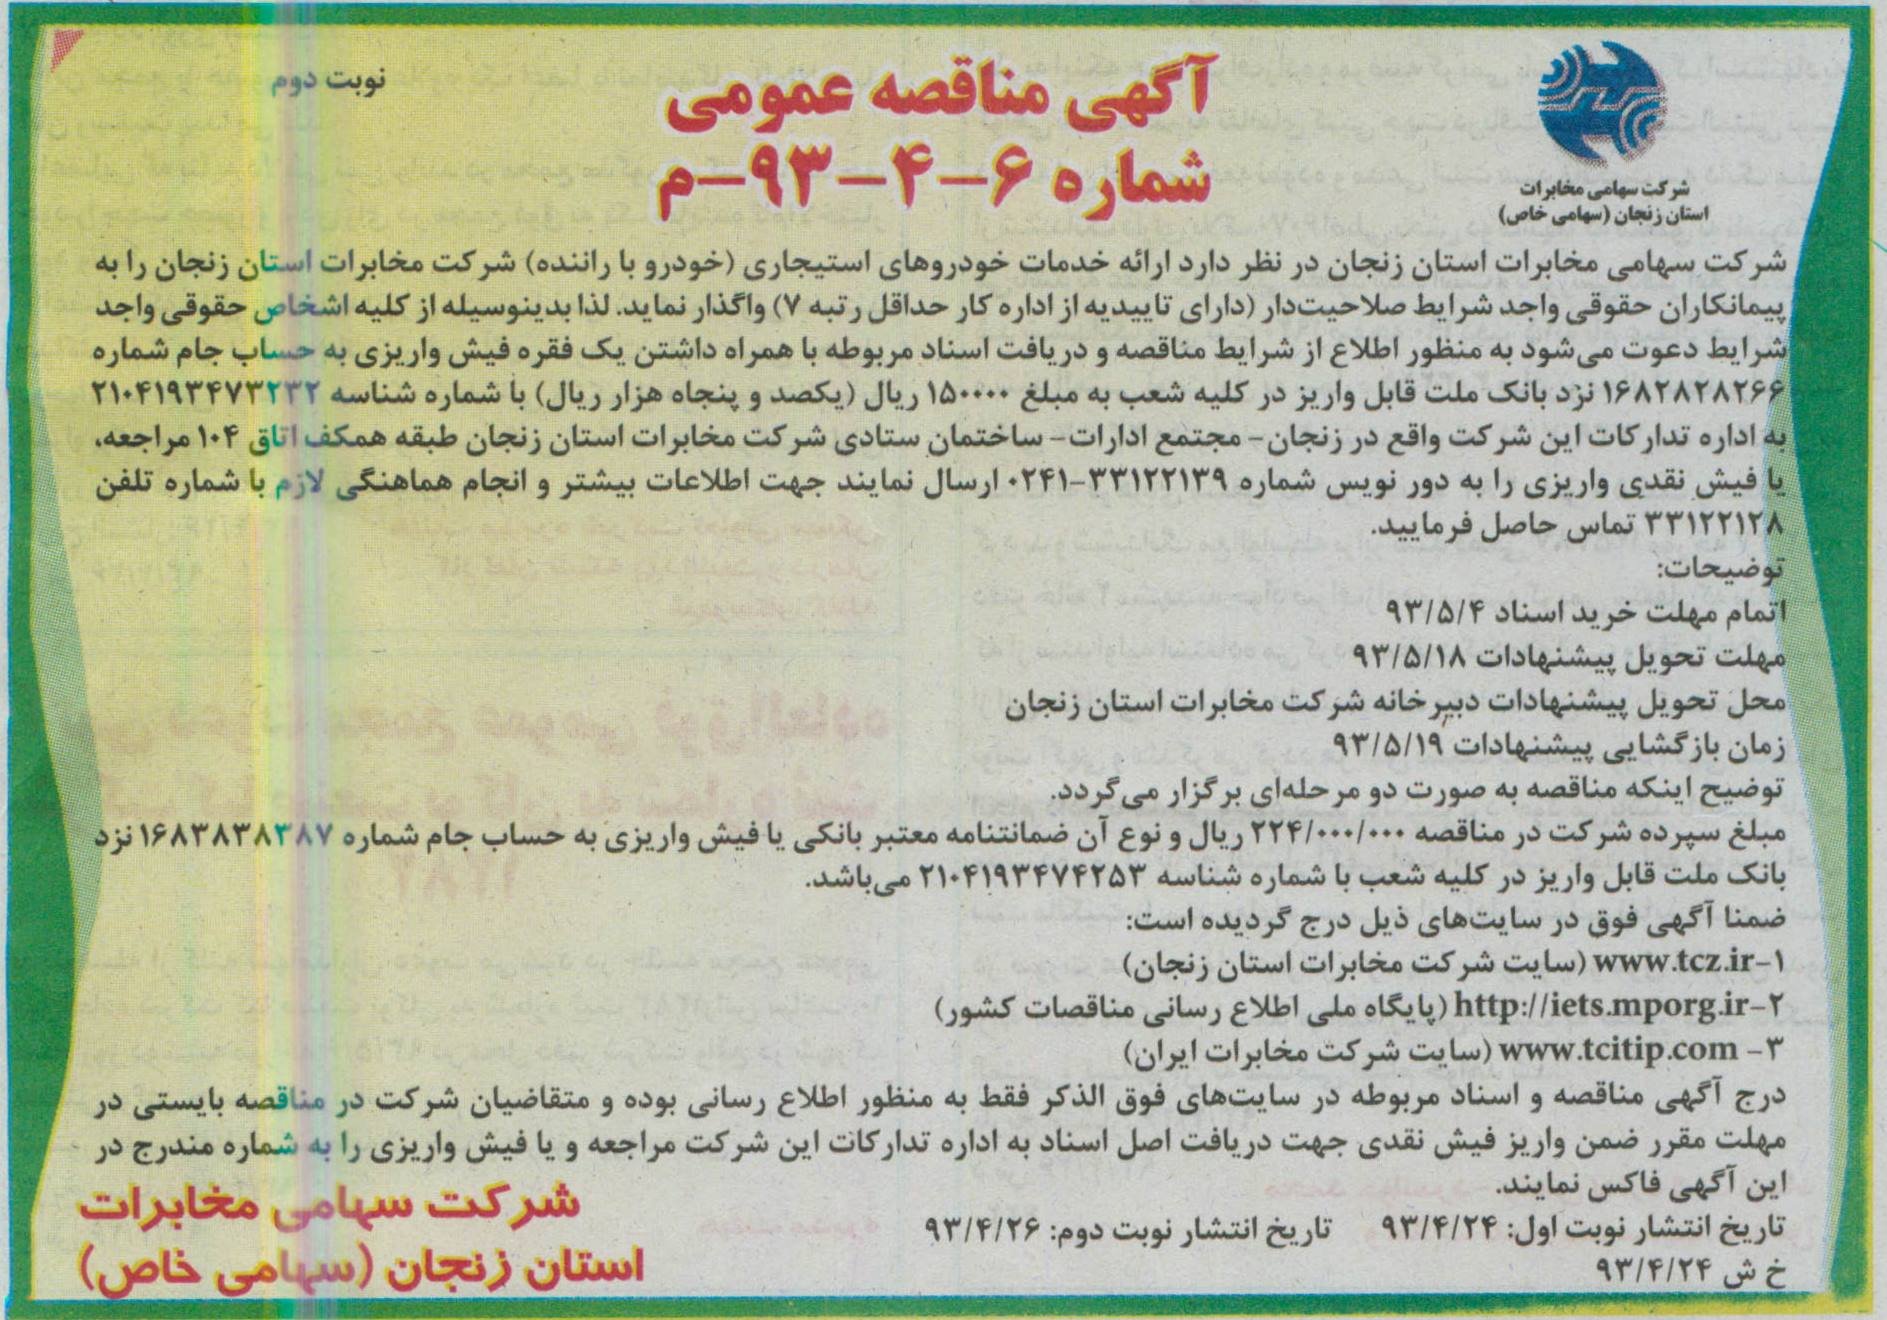 نوبت دوم
آگهی مناقصه عمومی
شماره ۶–۴–۹۳–م
شرکت سهامی مخابرات
استان زنجان (سهامی خاص)
شرکت سهامی مخابرات استان زنجان در نظر دارد ارائه خدمات خودروهای استیجاری (خودرو با راننده) شرکت مخابرات استان زنجان را به
پیمانکاران حقوقی واجد شرایط صلاحیت‌دار (دارای تاییدیه از اداره کار حداقل رتبه ۷) واگذار نماید. لذا بدینوسیله از کلیه اشخاص حقوقی واجد
شرایط دعوت می‌شود به منظور اطلاع از شرایط مناقصه و دریافت اسناد مربوطه با همراه داشتن یک فقره فیش واریزی به حساب جام شماره
۱۶۸۲۸۲۸۲۶۶ نزد بانک ملت قابل واریز در کلیه شعب به مبلغ ۱۵۰۰۰۰ ریال (یکصد و پنجاه هزار ریال) با شماره شناسه ۲۱۰۴۱۹۳۴۷۳۲۳۲
به اداره تدارکات این شرکت واقع در زنجان– مجتمع ادارات– ساختمان ستادی شرکت مخابرات استان زنجان طبقه همکف اتاق ۱۰۴ مراجعه،
یا فیش نقدی واریزی را به دور نویس شماره ۳۳۱۲۲۱۳۹–۰۲۴۱ ارسال نمایند جهت اطلاعات بیشتر و انجام هماهنگی لازم با شماره تلفن
۳۳۱۲۲۱۲۸ تماس حاصل فرمایید.
توضیحات:
اتمام مهلت خرید اسناد ۹۳/۵/۴
مهلت تحویل پیشنهادات ۹۳/۵/۱۸
محل تحویل پیشنهادات دبیرخانه شرکت مخابرات استان زنجان
زمان بازگشایی پیشنهادات ۹۳/۵/۱۹
توضیح اینکه مناقصه به صورت دو مرحله‌ای برگزار می‌گردد.
مبلغ سپرده شرکت در مناقصه ۲۲۴/۰۰۰/۰۰۰ ریال و نوع آن ضمانتنامه معتبر بانکی یا فیش واریزی به حساب جام شماره ۱۶۸۳۸۳۸۳۸۷ نزد
بانک ملت قابل واریز در کلیه شعب با شماره شناسه ۲۱۰۴۱۹۳۴۷۴۲۵۳ می‌باشد.
ضمنا آگهی فوق در سایت‌های ذیل درج گردیده است:
۱–www.tcz.ir (سایت شرکت مخابرات استان زنجان)
۲–http://iets.mporg.ir (پایگاه ملی اطلاع رسانی مناقصات کشور)
۳– www.tcitip.com (سایت شرکت مخابرات ایران)
درج آگهی مناقصه و اسناد مربوطه در سایت‌های فوق الذکر فقط به منظور اطلاع رسانی بوده و متقاضیان شرکت در مناقصه بایستی در
مهلت مقرر ضمن واریز فیش نقدی جهت دریافت اصل اسناد به اداره تدارکات این شرکت مراجعه و یا فیش واریزی را به شماره مندرج در
این آگهی فاکس نمایند.
تاریخ انتشار نوبت اول: ۹۳/۴/۲۴ تاریخ انتشار نوبت دوم: ۹۳/۴/۲۶
خ ش ۹۳/۴/۲۴
شرکت سهامی مخابرات
استان زنجان (سهامی خاص)